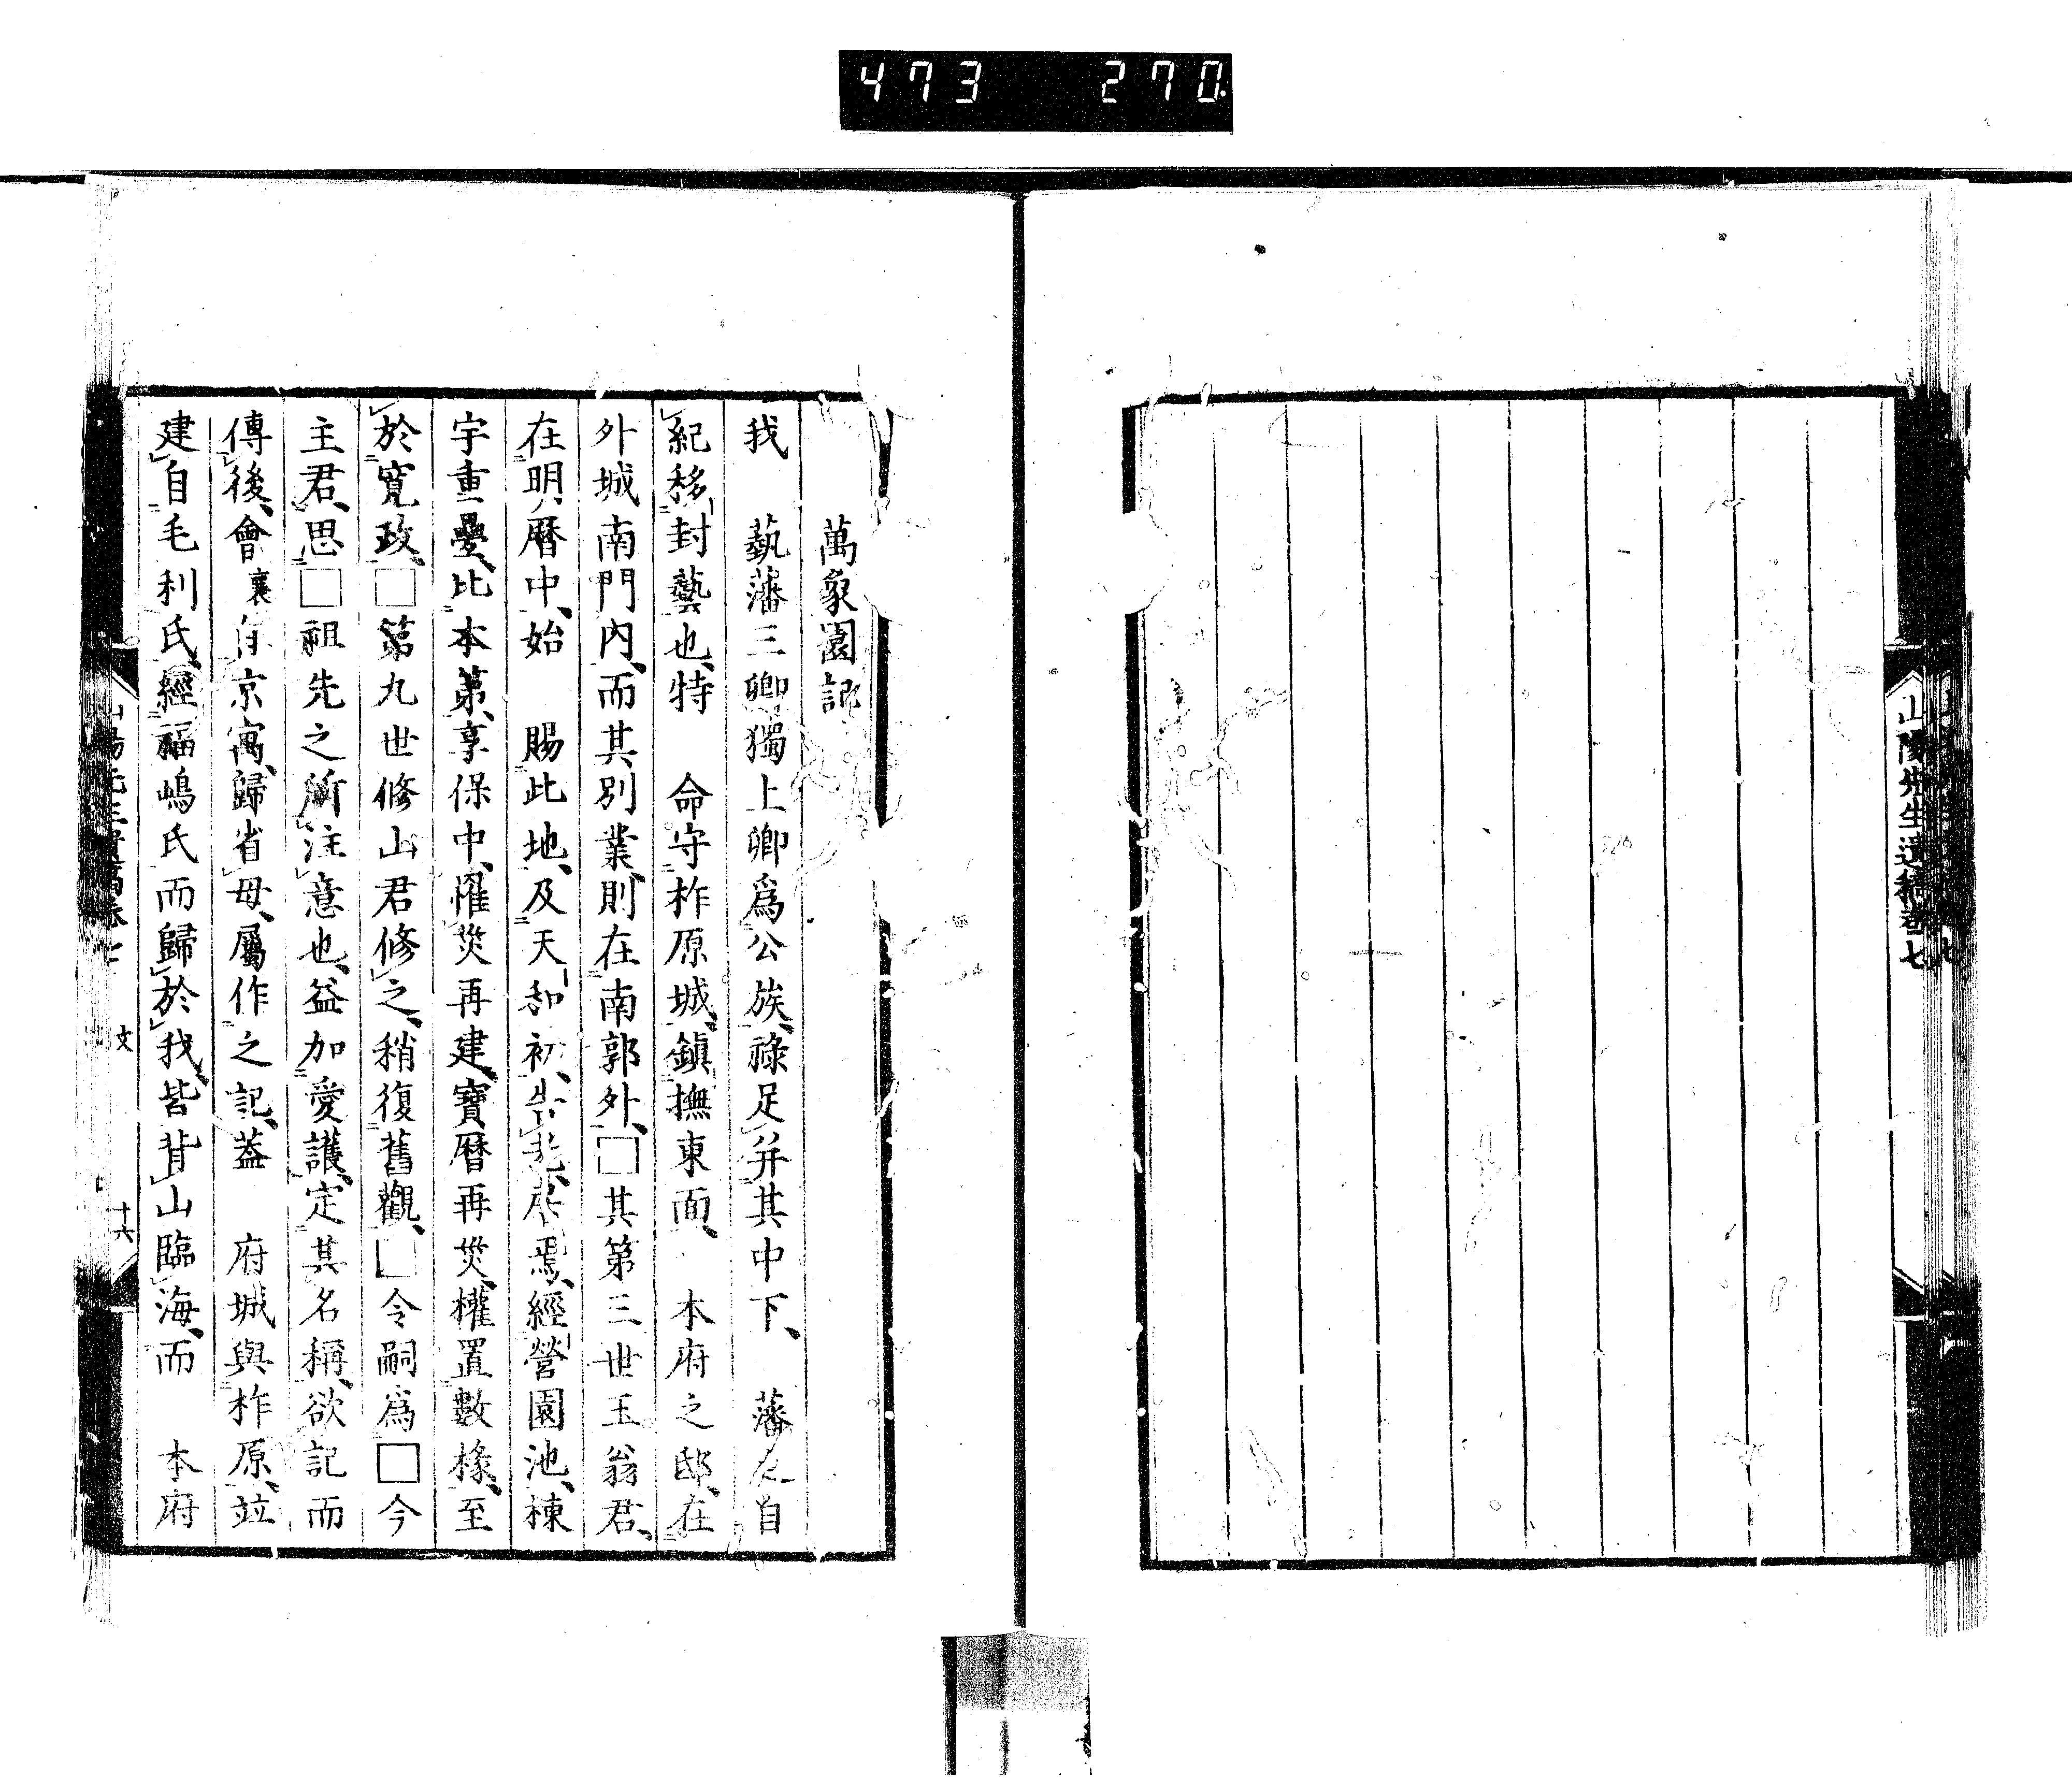 473 270
山陽先生遺稿卷七
萬象園記
我 藝藩三卿獨上卿爲公族、祿足幷其中下、 藩之自
紀移封藝也、特 命守柞原城、鎭撫東面、 本府之邸、在
外城南門內、而其別業、則在南郭外、□其第三世玉翁君、
在明曆中、始 賜此地、及天和初、告老、居焉、經營園池、棟
宇重疊、比本第、享保中、罹災再建、寶曆再災、權置數椽、至
於寬政、□第九世修山君修之、稍復舊觀、□令嗣爲□今
主君、思□祖先之所注意也、益加愛護、定其名稱、欲記而
傳後、會襄自京寓、歸省母、屬作之記、蓋 府城與柞原、竝
建自毛利氏、經福嶋氏而歸於我、皆背山臨海、而 本府
山陽先生遺稿卷七 文 十六